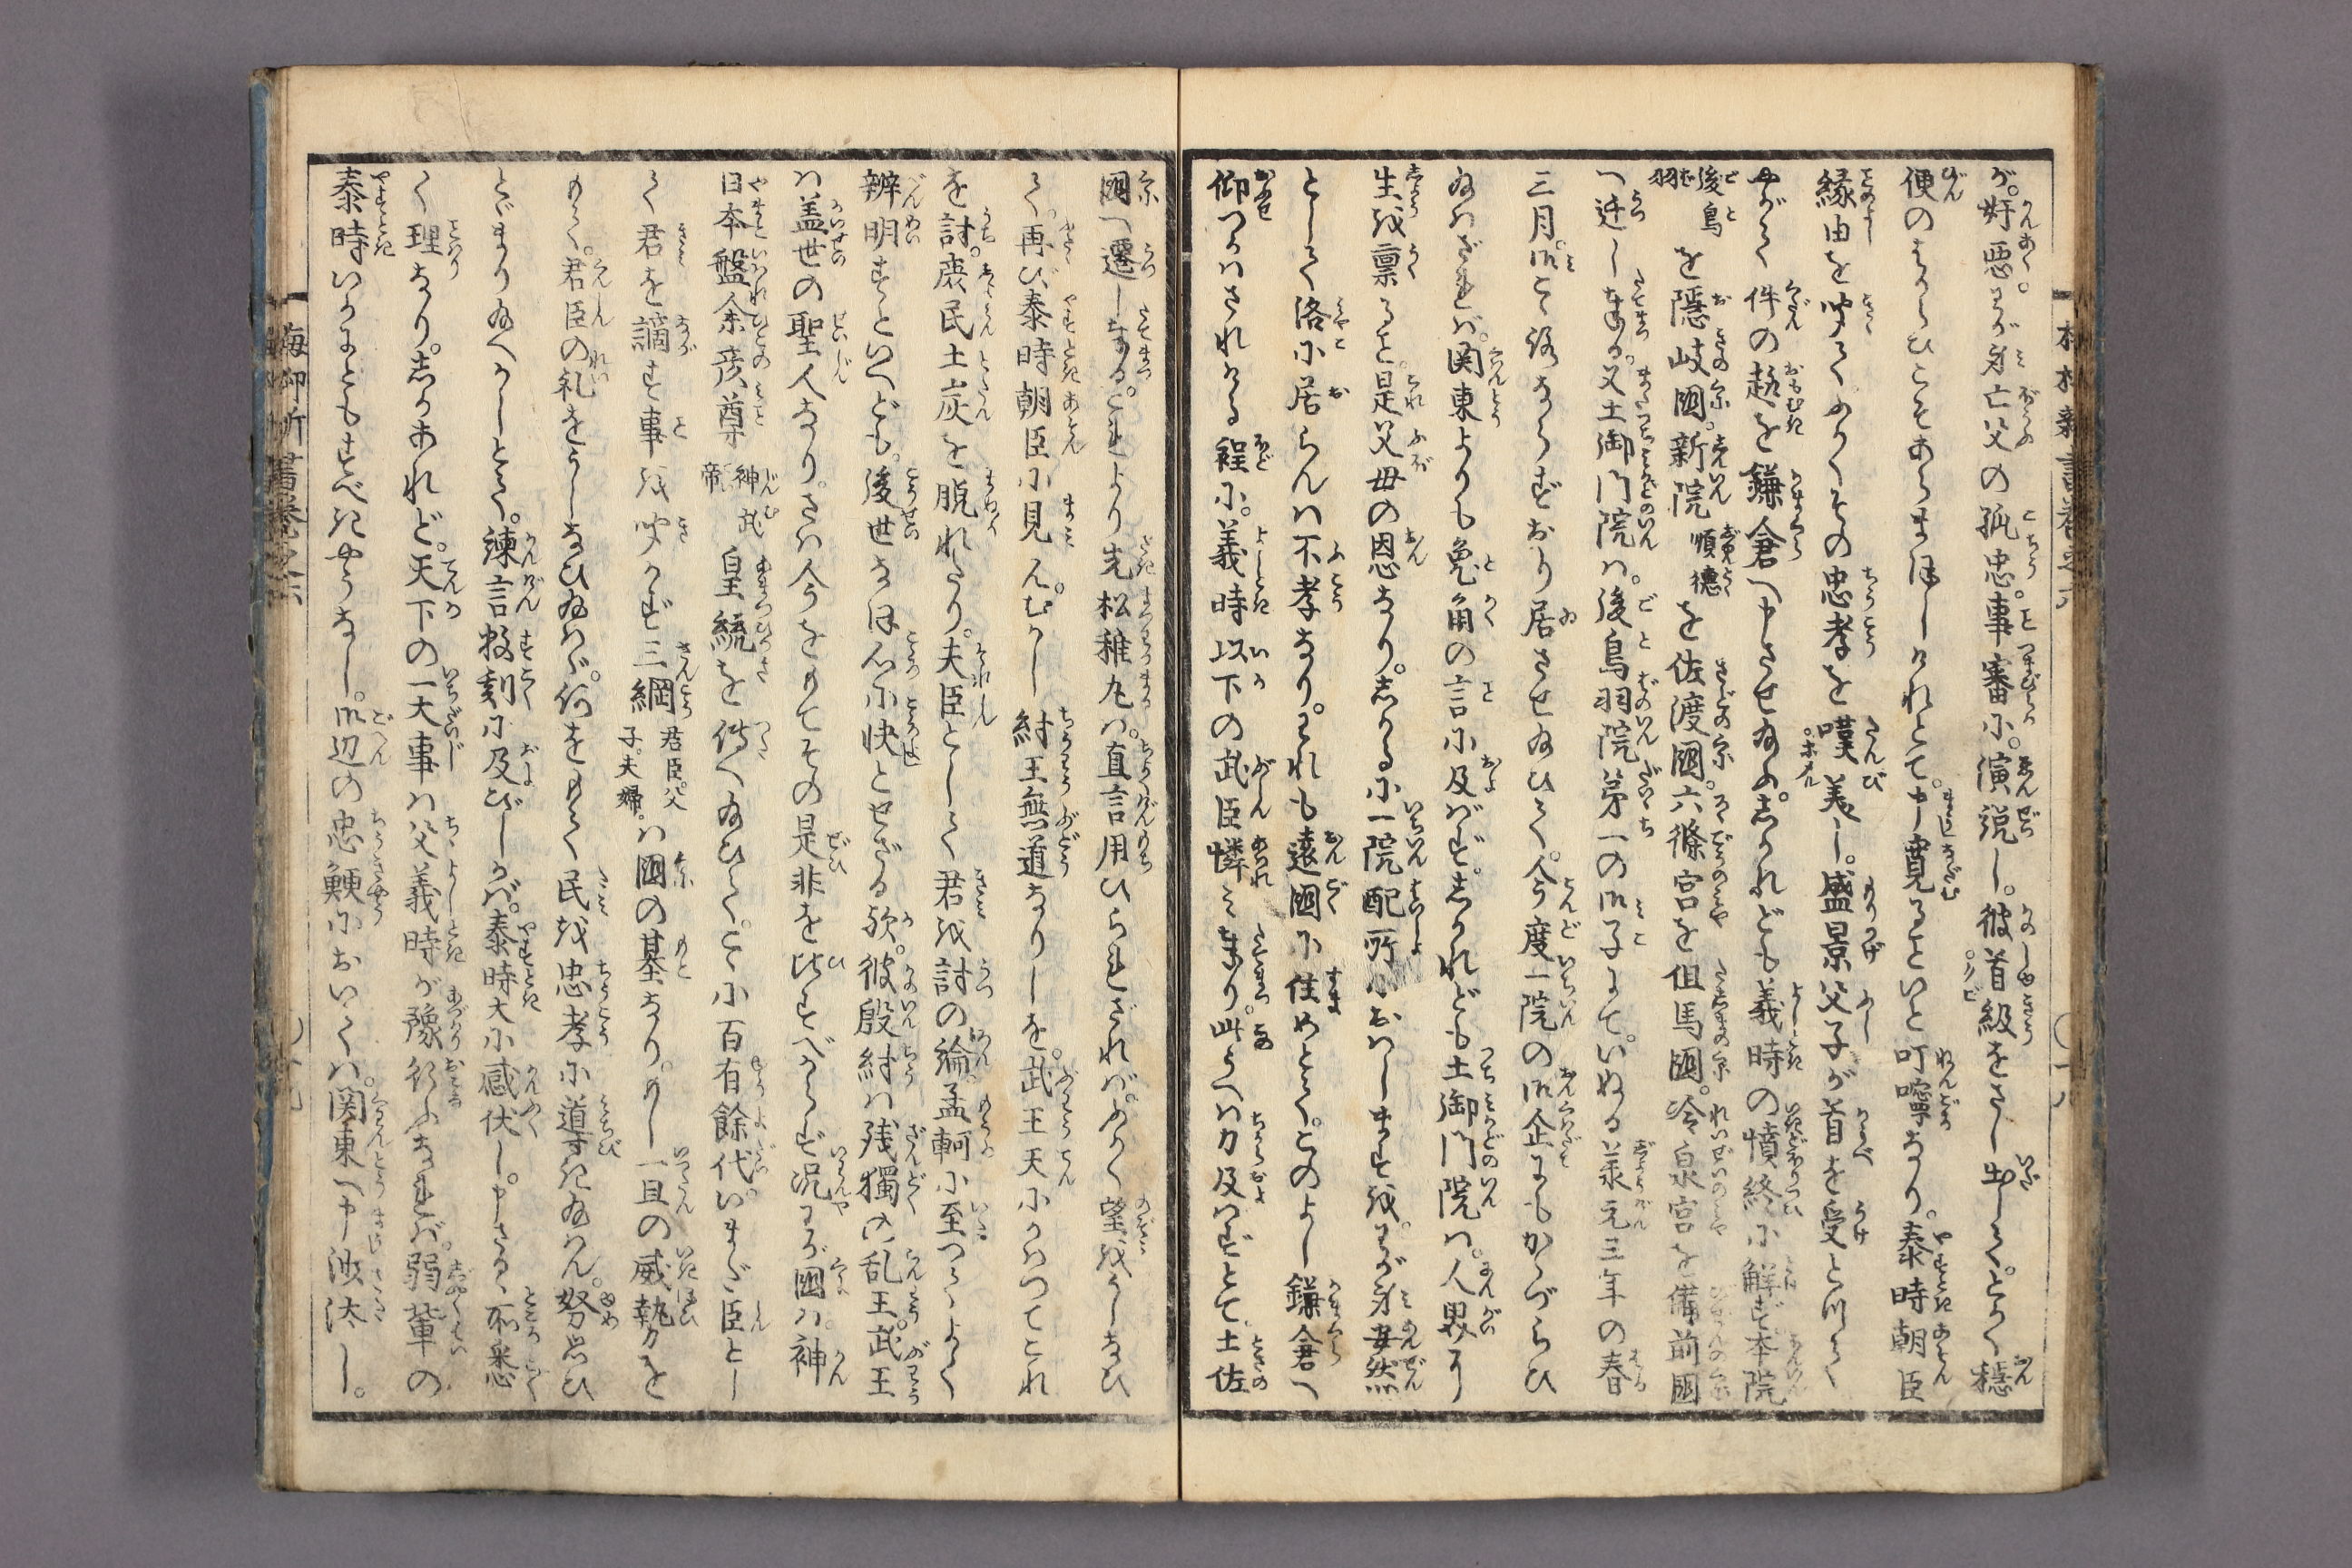 が奸悪。わが身亡父の孤忠。事審に。演説し。彼首級をさし出して。とかく穏
便のはからひこそあらまほしけれとて。申寛るといと叮嚀なり。泰時朝臣
縁由を聞てふかくその忠孝を嘆美し。盛景父子が首を受とりて
やがて件の趣を鎌倉へ申させ給ふ。しかれども義時の憤終に解ず本院
後鳥羽を隠岐國。新院順徳を佐渡國。六條宮を但馬國。冷泉宮を備前國
へ迁し奉る。又土御門院は。後鳥羽院第一の御子にて。いぬる承元三年の春
三月。御こゝろならずおり居させ給ひて。今度一院の御企にもかゝづらひ
給はざれば。関東よりも兔角の言に及ばず。しかれども土御門院は。人界に
生を禀ると。是父母の恩なり。しかるに一院配所におはしますを。わが身安然
として洛に居らんは不孝なり。われも遠國に住めとて。このよし鎌倉へ
仰つかはされける程に。義時以下の武臣憐み奉り。此うへは力及ばずとて。土佐
國へ遷し奉る。これより先松稚丸は。直言用ひられざれば。ふかく望をうしなひ
て。再び泰時朝臣に見えず。むかし紂王無道なりしを。武王天にかはつてこれ
を討。庶民土炭を脱れたり。夫臣として君を討の論。孟軻に至つてよく
辨明すといへども。後世なほ心に快とせざる歟。彼殷紂は残獨の乱王。武王
は盖世の聖人なり。さは今をもてその是非を比すべからず。况わが國は。神
日本盤余彦尊神武帝皇統を傳へ給ひて。こゝに百有餘代。いまだ臣とし
て君を謫す事を聞かず三綱君臣。父子。夫婦。は國の基なり。もし一旦の威勢を
もて。君臣の礼をうしなひ給はゞ。何をもて民を忠孝に導き給はん。努思ひ
とゞまり給へかしとて。諫言数刻に及びしかば。泰時大に感伏し。申さるゝ所悉
く理なり。しかあれど。天下の一大事は父義時が豫行ふなれば。弱輩の
泰時いかにともすべきやうなし。御辺の忠鯁においては。関東へ申沙汰し。